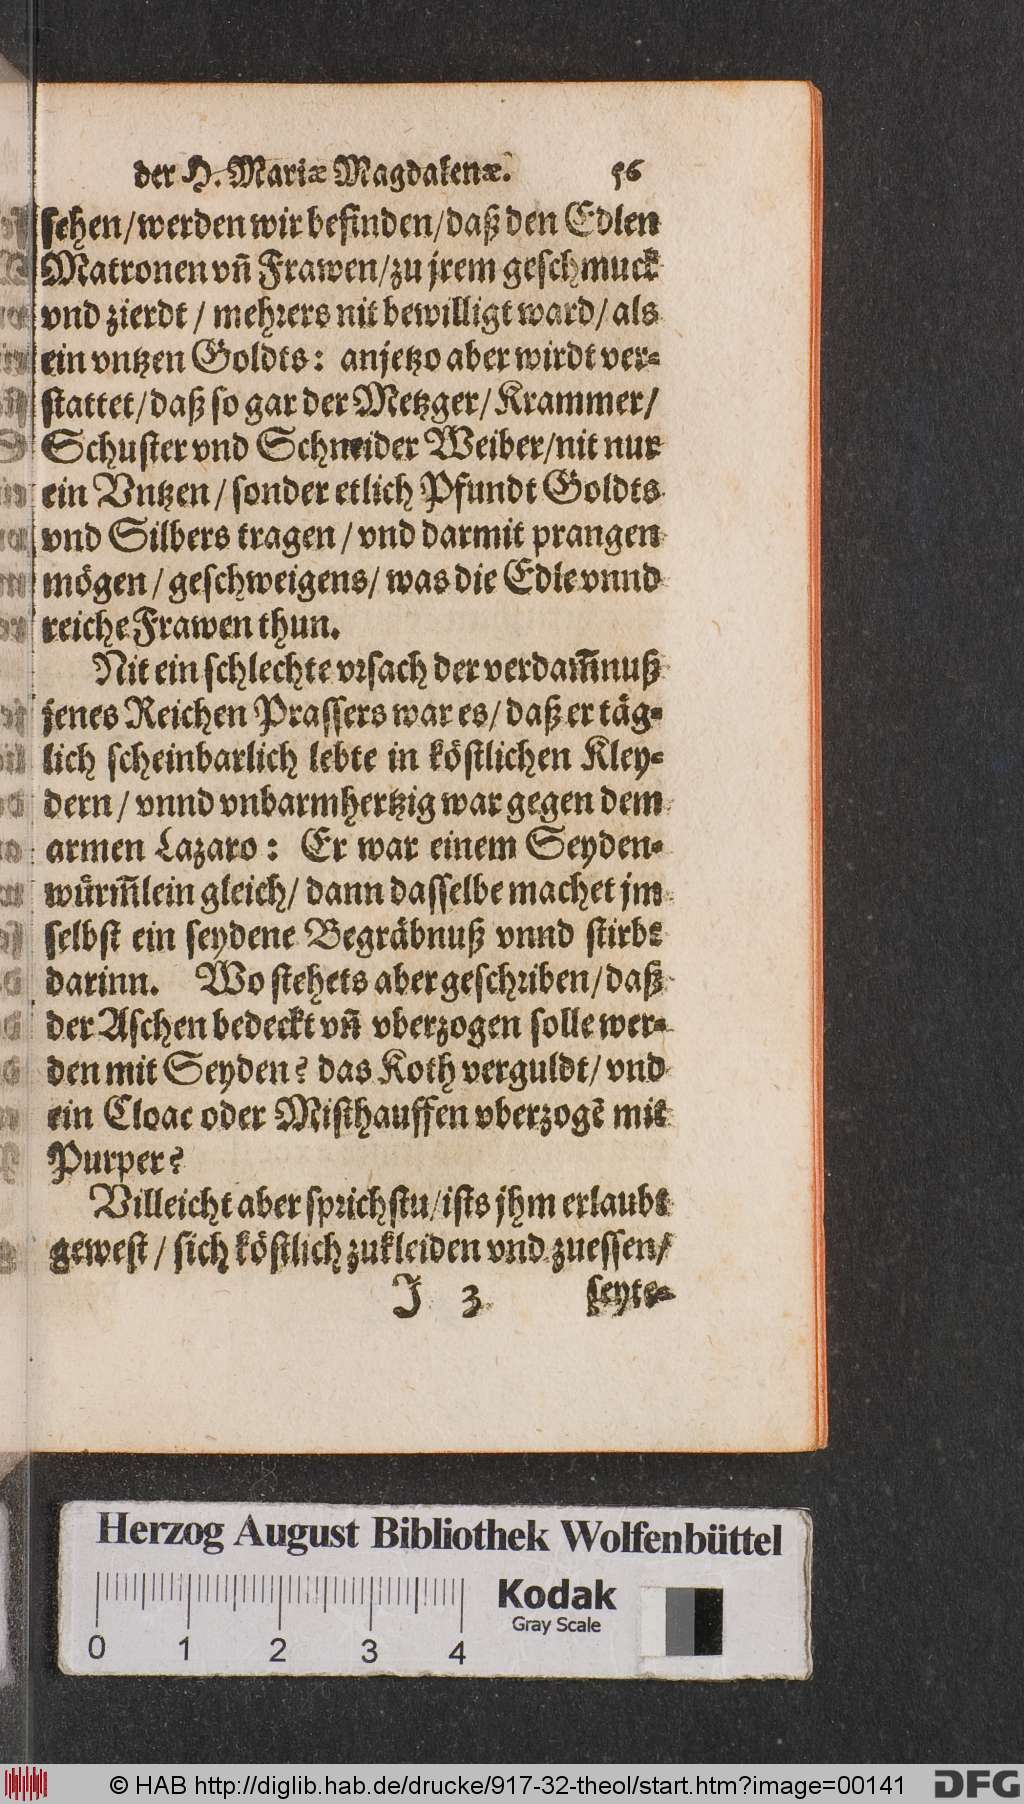 der H. Mariæ Magdalenæ. 56
sehen/werden wir befinden/daß den Edlen
Matronen vñ Frawen/zu jrem geschmuck
vnd zierdt / mehrers nit bewilligt ward/ als
ein vntzen Goldts: anjetzo aber wirdt ver-
stattet/daß so gar der Metzger/ Krammer/
Schuster vnd Schneider Weiber/nit nur
ein Vntzen / sonder etlich Pfundt Goldts
vnd Silbers tragen / vnd darmit prangen
mögen / geschweigens/ was die Edle vnnd
reiche Frawen thun.
Nit ein schlechte vrsach der verdam̃nuß
jenes Reichen Prassers war es/ daß er täg-
lich scheinbarlich lebte in köstlichen Kley-
dern / vnnd vnbarmhertzig war gegen dem
armen Lazaro: Er war einem Seyden-
würm̃lein gleich/ dann dasselbe machet jm
selbst ein seydene Begräbnuß vnnd stirbt
darinn. Wo stehets aber geschriben/daß
der Aschen bedeckt vñ vberzogen solle wer-
den mit Seyden? das Koth verguldt/ vnd
ein Cloac oder Misthauffen vberzogẽ mit
Purper?
Villeicht aber sprichstu/ists jhm erlaubt
gewest / sich köstlich zukleiden vnd zuessen/
J 3 seyte-
Herzog August Bibliothek Wolfenbüttel
Kodak
Gray Scale
0 1 2 3 4
© HAB http://diglib.hab.de/drucke/917-32-theol/start.htm?image=00141 DFG